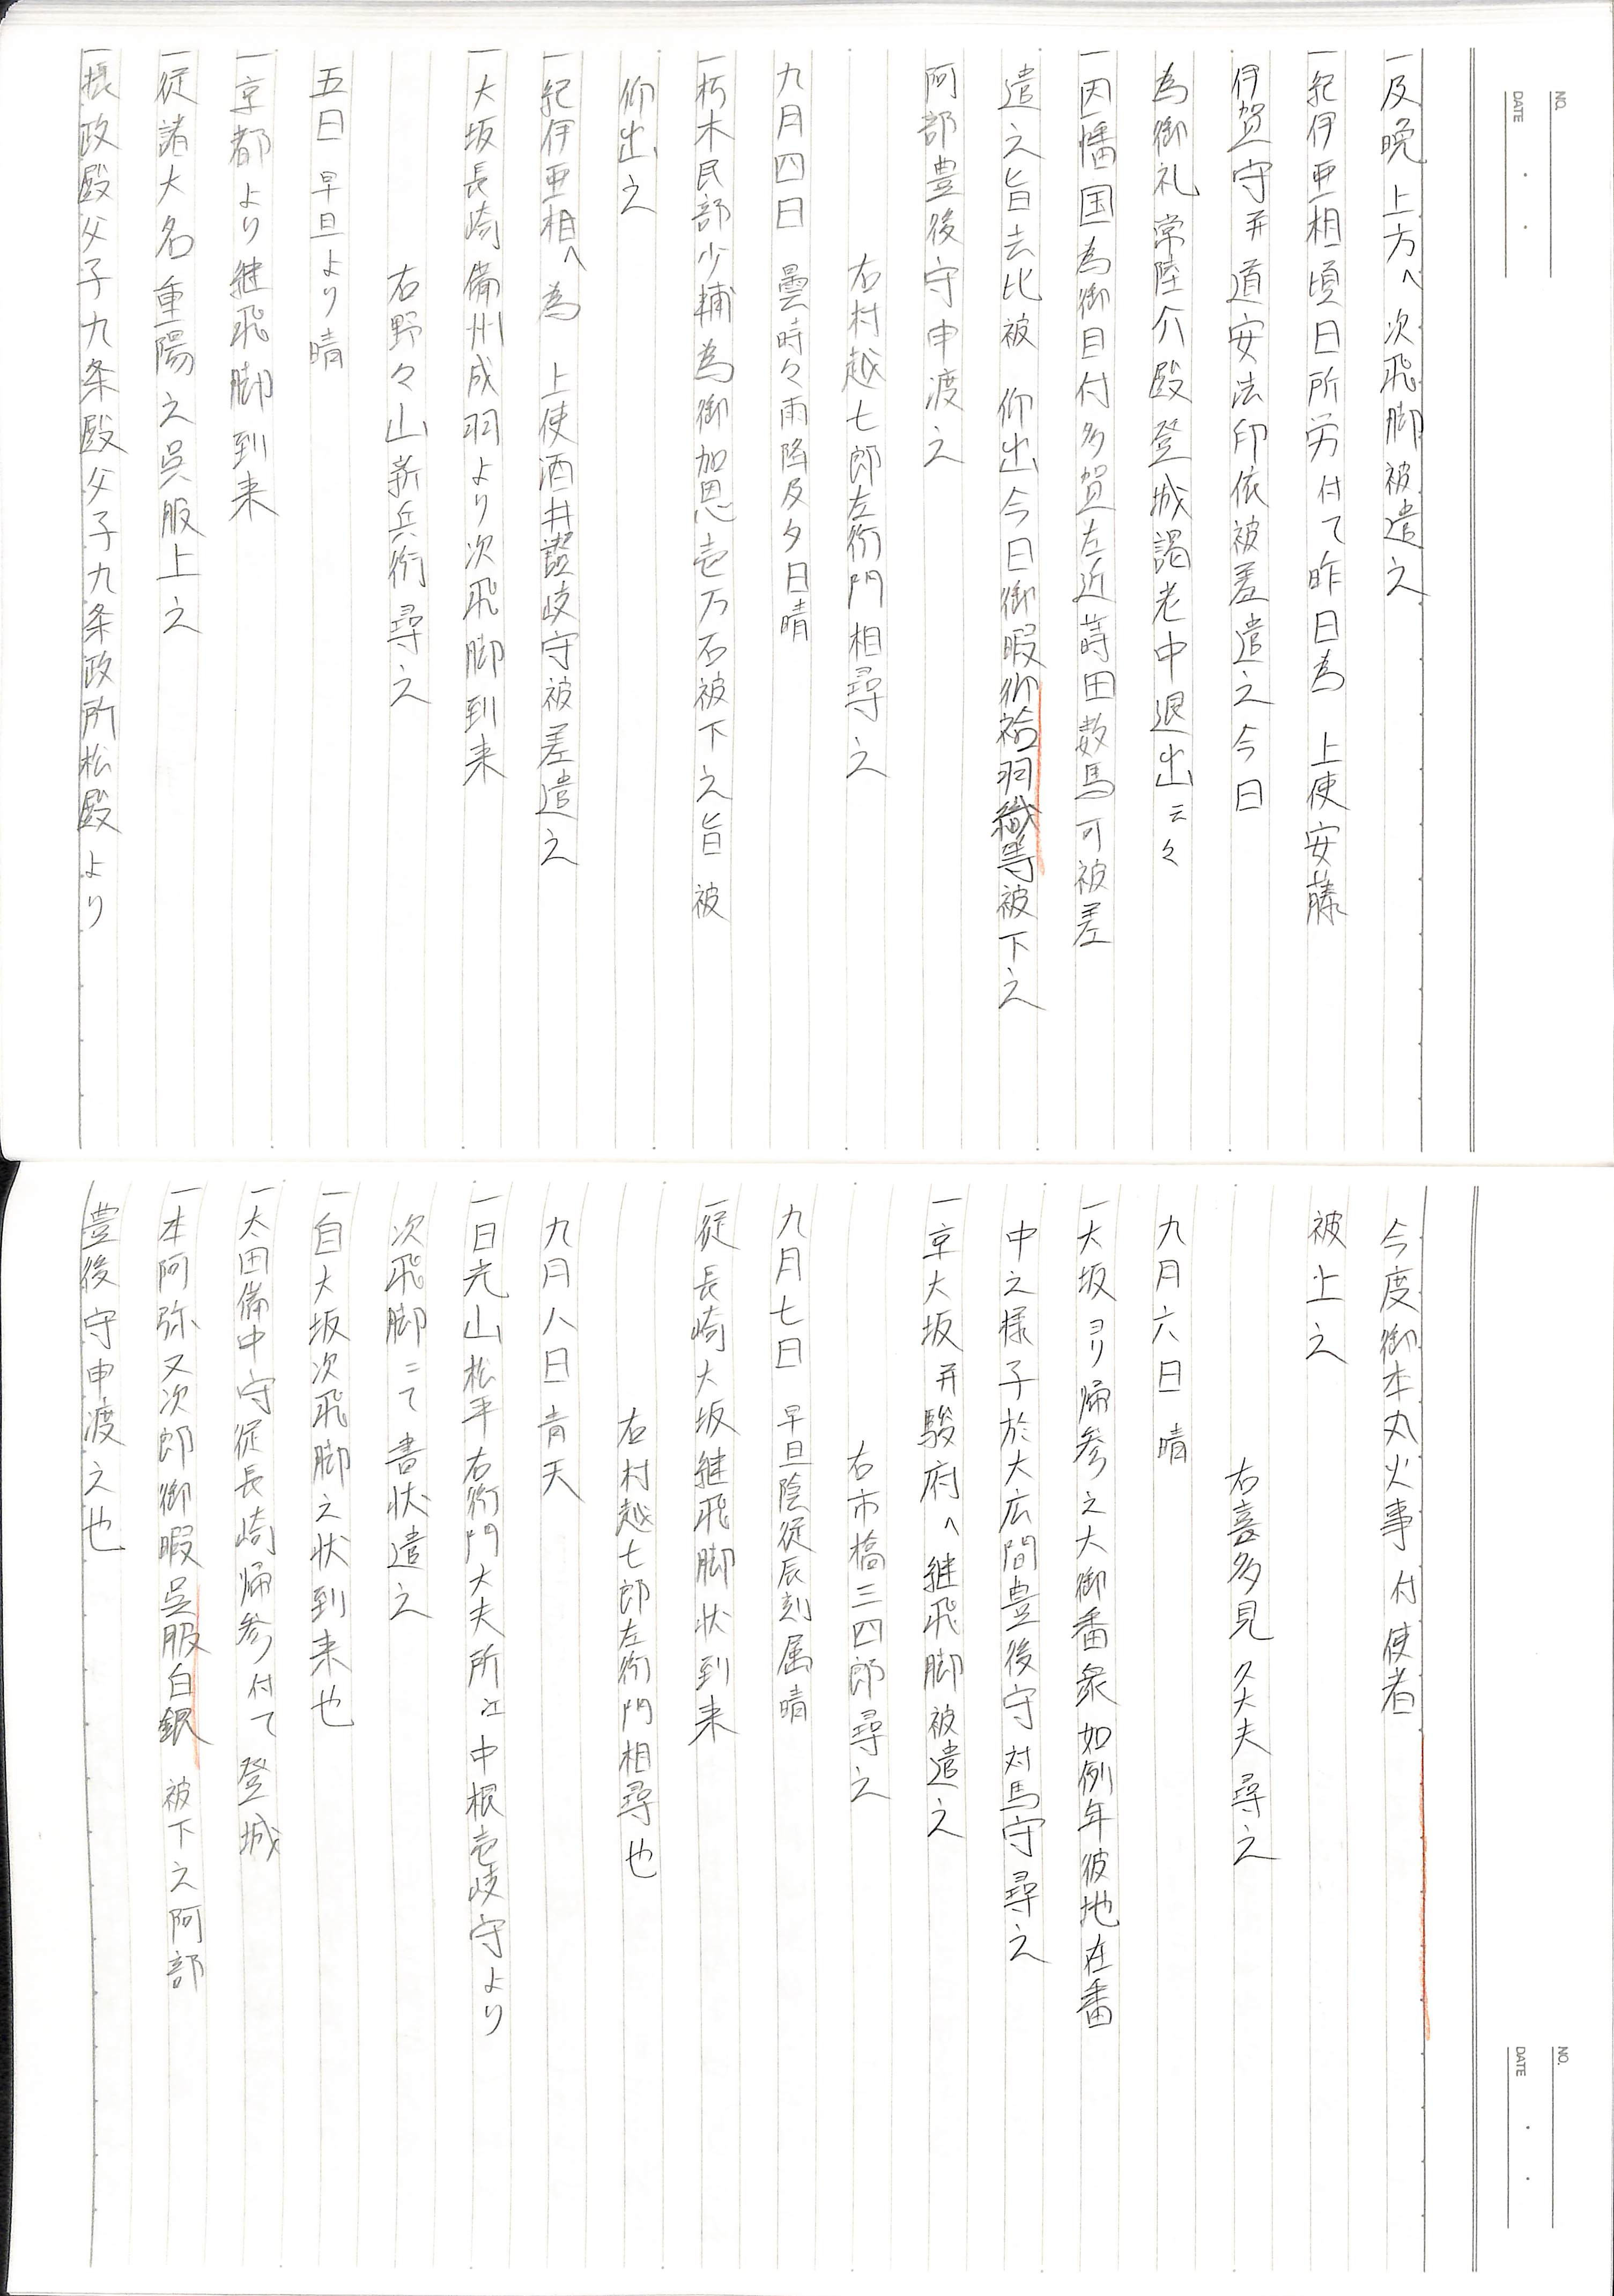 NO.
DATE
一及晩 上方へ次飛脚被遣之
一紀伊亜相頃日所労付て昨日為 上使安藤
伊賀守并道安法印依被差遣之今日
為御礼常陸介殿登城謁老中退出云々
一因幡国為御目付多賀左近蒔田数馬可被差
遣之旨去比被 仰出今日御暇御袷羽織等被下之
阿部豊後守申渡之
右村越七郎左衛門相尋之
九月四日 曇時々雨降及夕日晴
一朽木民部少輔為御加恩壱万石被下之旨 被
仰出之
一紀伊亜相へ為 上使酒井讃岐守被差遣之
一大坂長崎備州成羽より次飛脚到来
右野々山新兵衛尋之
五日 早旦より晴
一京都より継飛脚到来
一従諸大名重陽之呉服上之
一摂政殿父子九条殿父子九条政所松殿より
NO.
DATE
今度御本丸火事付使者
被上之
右喜多見久大夫尋之
九月六日 晴
一大坂ヨリ帰参之大御番衆如例年彼地在番
中之様子於大広間豊後守対馬守尋之
一京大坂并駿府へ継飛脚被遣之
右市橋三四郎尋之
九月七日 早旦陰従辰刻属晴
一従長崎大坂継飛脚状到来
右村越七郎左衛門相尋也
九月八日 青天
一日光山松平右衛門大夫所江中根壱岐守より
次飛脚ニて書状遣之
一自大坂次飛脚之状到来也
一太田備中守従長崎帰参付て登城
一本阿弥又次郎御暇呉服白銀 被下之阿部
豊後守申渡之也